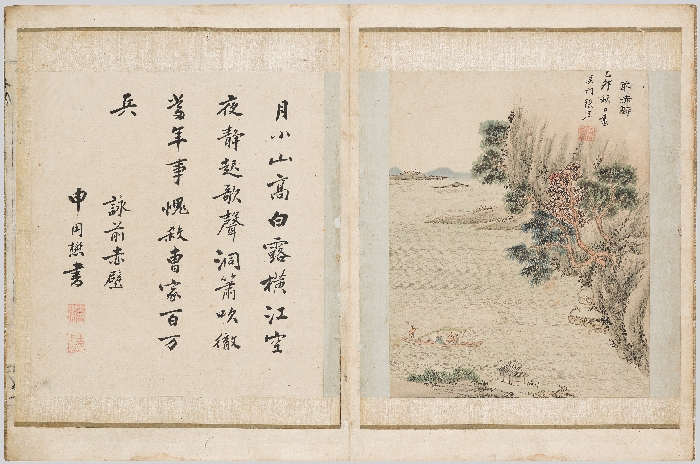 前赤壁
卯秋日寫
吳門張
月小山高白露橫江空
夜靜起歌聲洞簫吹徹
當年事愧殺曹家百万
兵
詠前赤壁
申用懋書